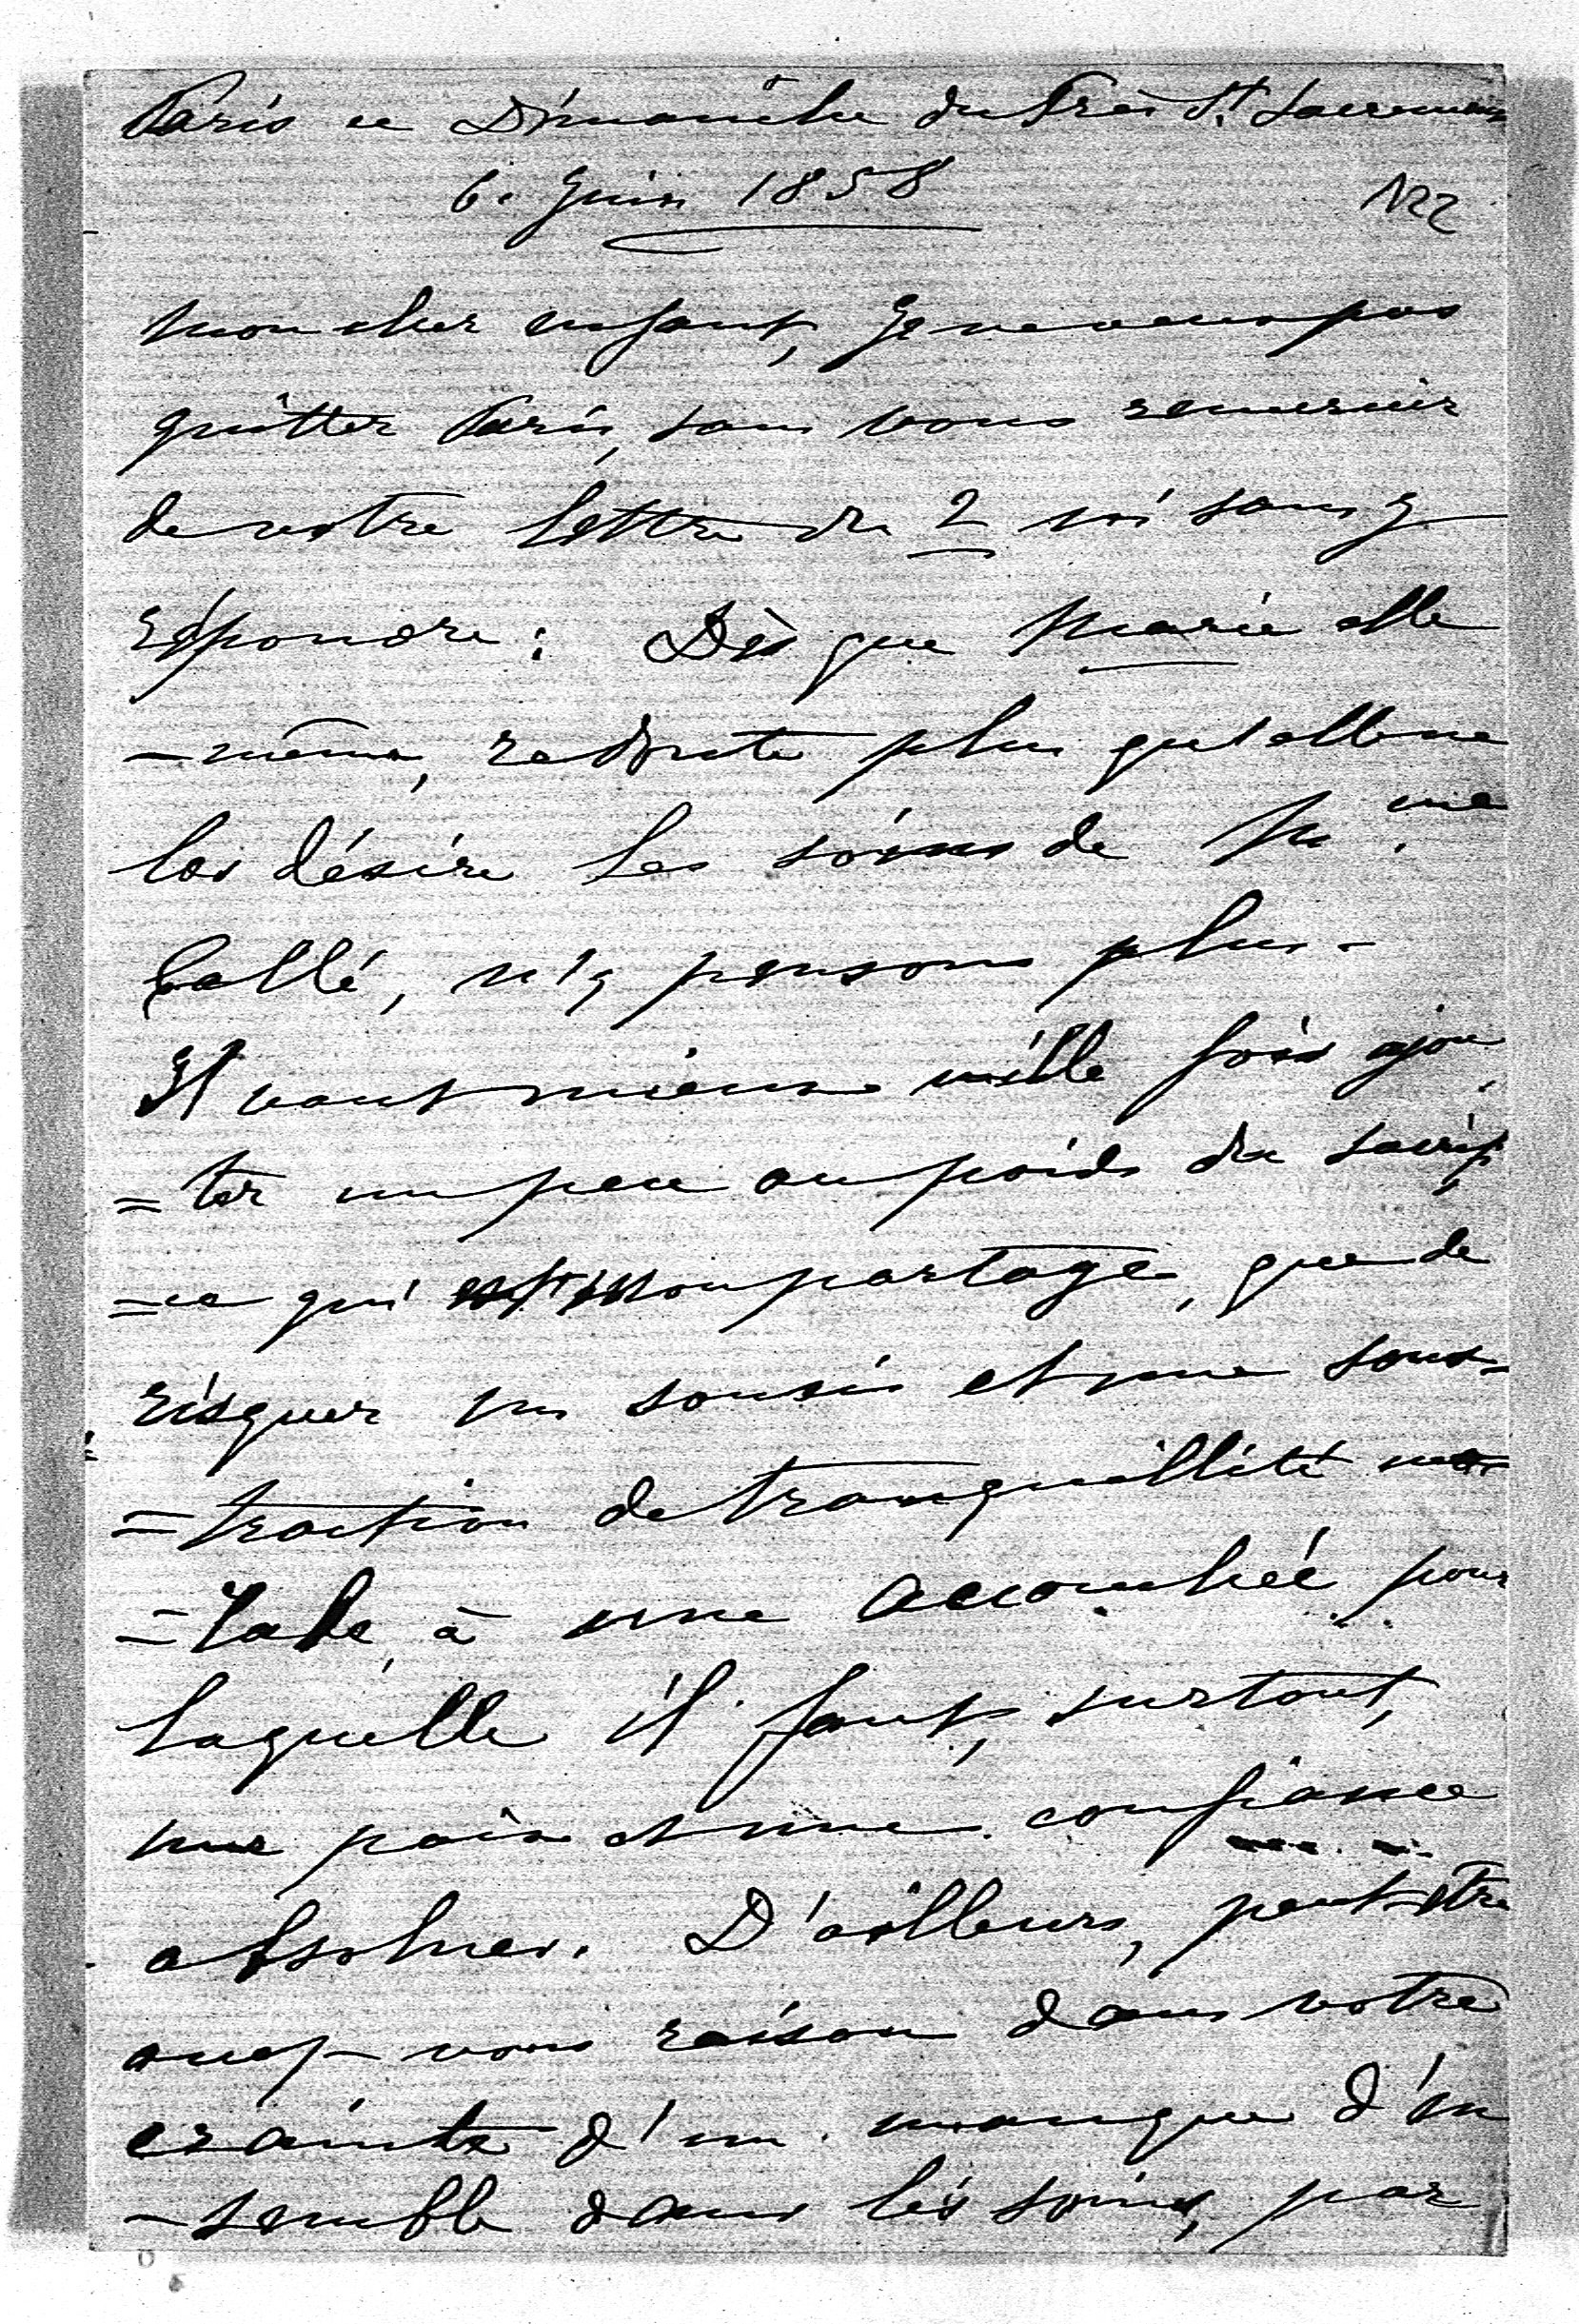 Paris ce Dimanche du Très St. Sacrement
6. Juin 1858
122
mon cher enfant, Je ne veux pas
quitter Paris, sans vous remercier
de votre lettre du 2 ni sans y
répondre : Dès que Marie elle
-même, redoute plus qu'elle ne
les désire les soins de M.me
Callé, n'y pensons plus-
Il vaut mieux mille fois ajou
=ter un peu au poids du sacrifi
=ce qui est mon partage, que de
risquer un souci et une sous-
=traction de tranquillité
à une accouchée pour
laquelle il faut, surtout,
une paix et une confiance
absolues. D'ailleurs, peut-être
avez-vous raison dans votre
crainte d'un manque d'en
-semble dans les soins, par